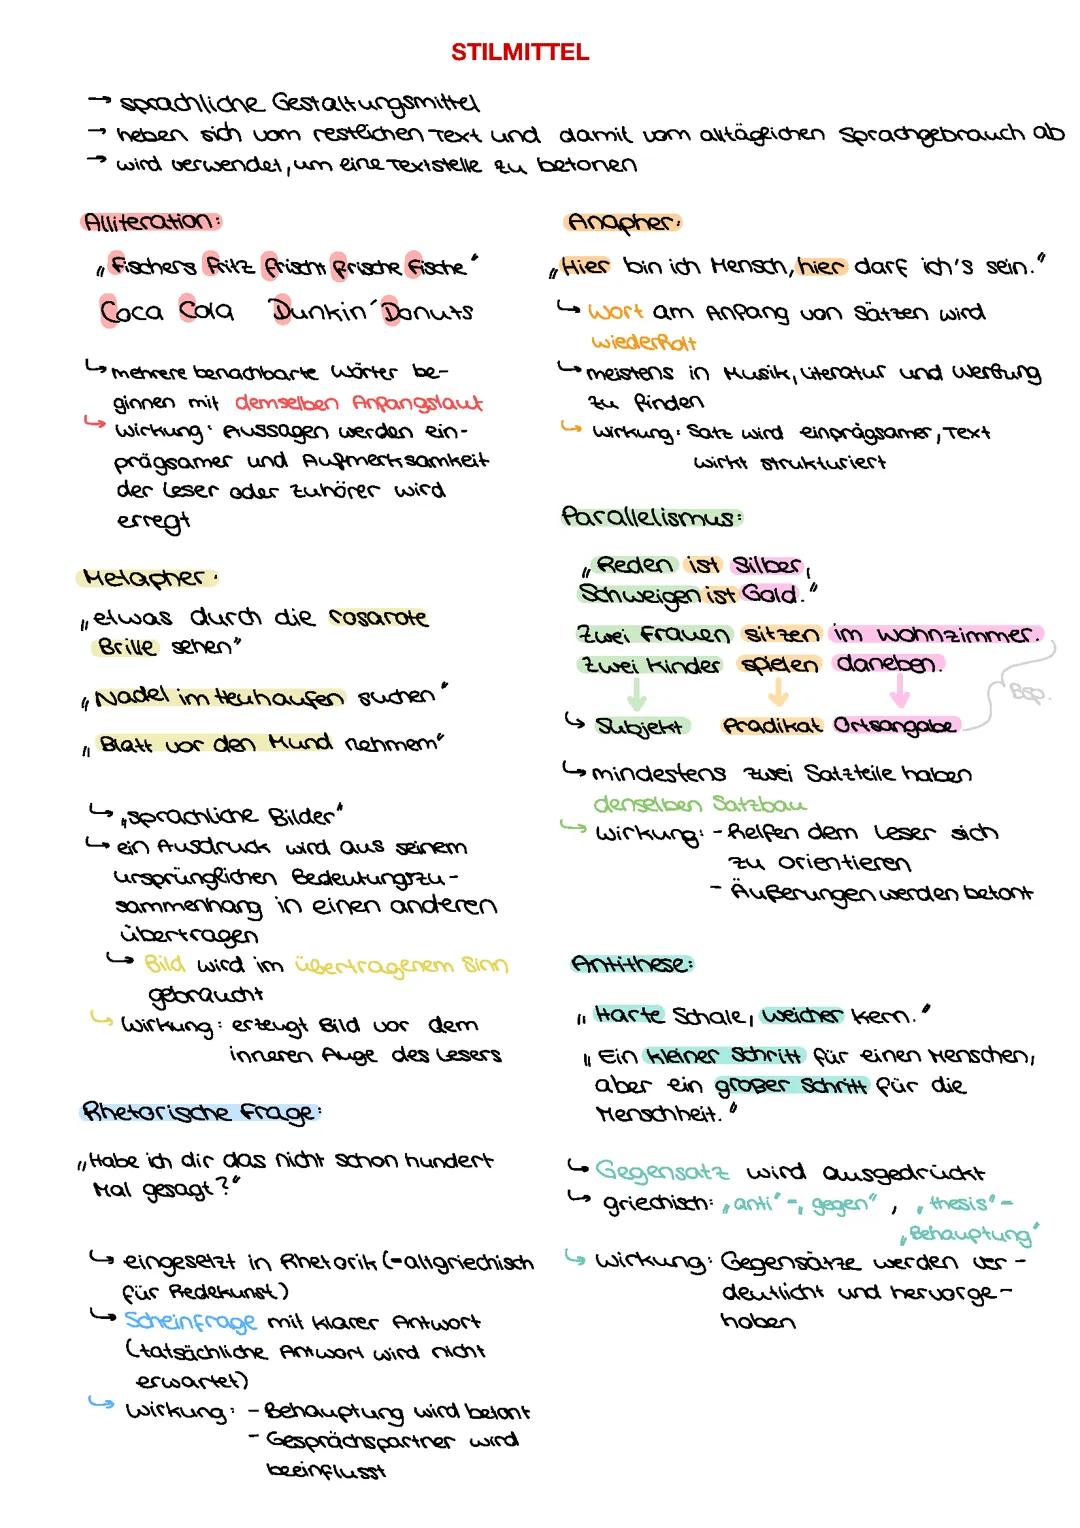 STILMITTEL
→ sprachliche Gestaltungsmittel
→ heben sich vom restlichen Text und damit vom alltäglichen Sprachgebrauch ab
→ wird verwendet, um eine Textstelle zu betonen
Alliteration:
„Fischers Fritz frischt frische Fische"
Coca Cola Dunkin' Donuts
↳ mehrere benachbarte Wörter be-
ginnen mit demselben Anfangslaut
↳ Wirkung: Aussagen werden ein-
prägsamer und Aufmerksamkeit
der Leser oder Zuhörer wird
erregt
Metapher:
„etwas durch die rosarote
Brille sehen"
„Nadel im Heuhaufen suchen"
„Blatt vor den Mund nehmem"
↳ „sprachliche Bilder"
↳ ein Ausdruck wird aus seinem
ursprünglichen Bedeutungszu-
sammenhang in einen anderen
übertragen
↳ Bild wird im übertragenem Sinn
gebraucht
↳ Wirkung: erzeugt Bild vor dem
inneren Auge des Lesers
Rhetorische Frage:
„Habe ich dir das nicht schon hundert
Mal gesagt?"
↳ eingesetzt in Rhetorik (=altgriechisch
für Redekunst)
↳ Scheinfrage mit klarer Antwort
(tatsächliche Antwort wird nicht
erwartet)
↳ Wirkung: - Behauptung wird betont
- Gesprächspartner wird
beeinflusst
Anapher:
„Hier bin ich Mensch, hier darf ich's sein."
↳ Wort am Anfang von Sätzen wird
wiederholt
↳ meistens in Musik, Literatur und Werbung
zu finden
↳ Wirkung: Satz wird einprägsamer, Text
wirkt strukturiert
Parallelismus:
„Reden ist Silber,
Schweigen ist Gold."
Zwei Frauen sitzen im Wohnzimmer.
Zwei Kinder spielen daneben.
Bsp.
↳ Subjekt Prädikat Ortsangabe
↳ mindestens zwei Satzteile haben
denselben Satzbau
↳ Wirkung: - helfen dem Leser sich
zu orientieren
- Äußerungen werden betont
Antithese:
„Harte Schale, weicher Kern."
„Ein kleiner Schritt für einen Menschen,
aber ein großer Schritt für die
Menschheit."
↳ Gegensatz wird ausgedrückt
↳ griechisch: „anti" - „gegen", „thesis" -
„Behauptung"
↳ Wirkung: Gegensätze werden ver-
deutlicht und hervorge-
hoben